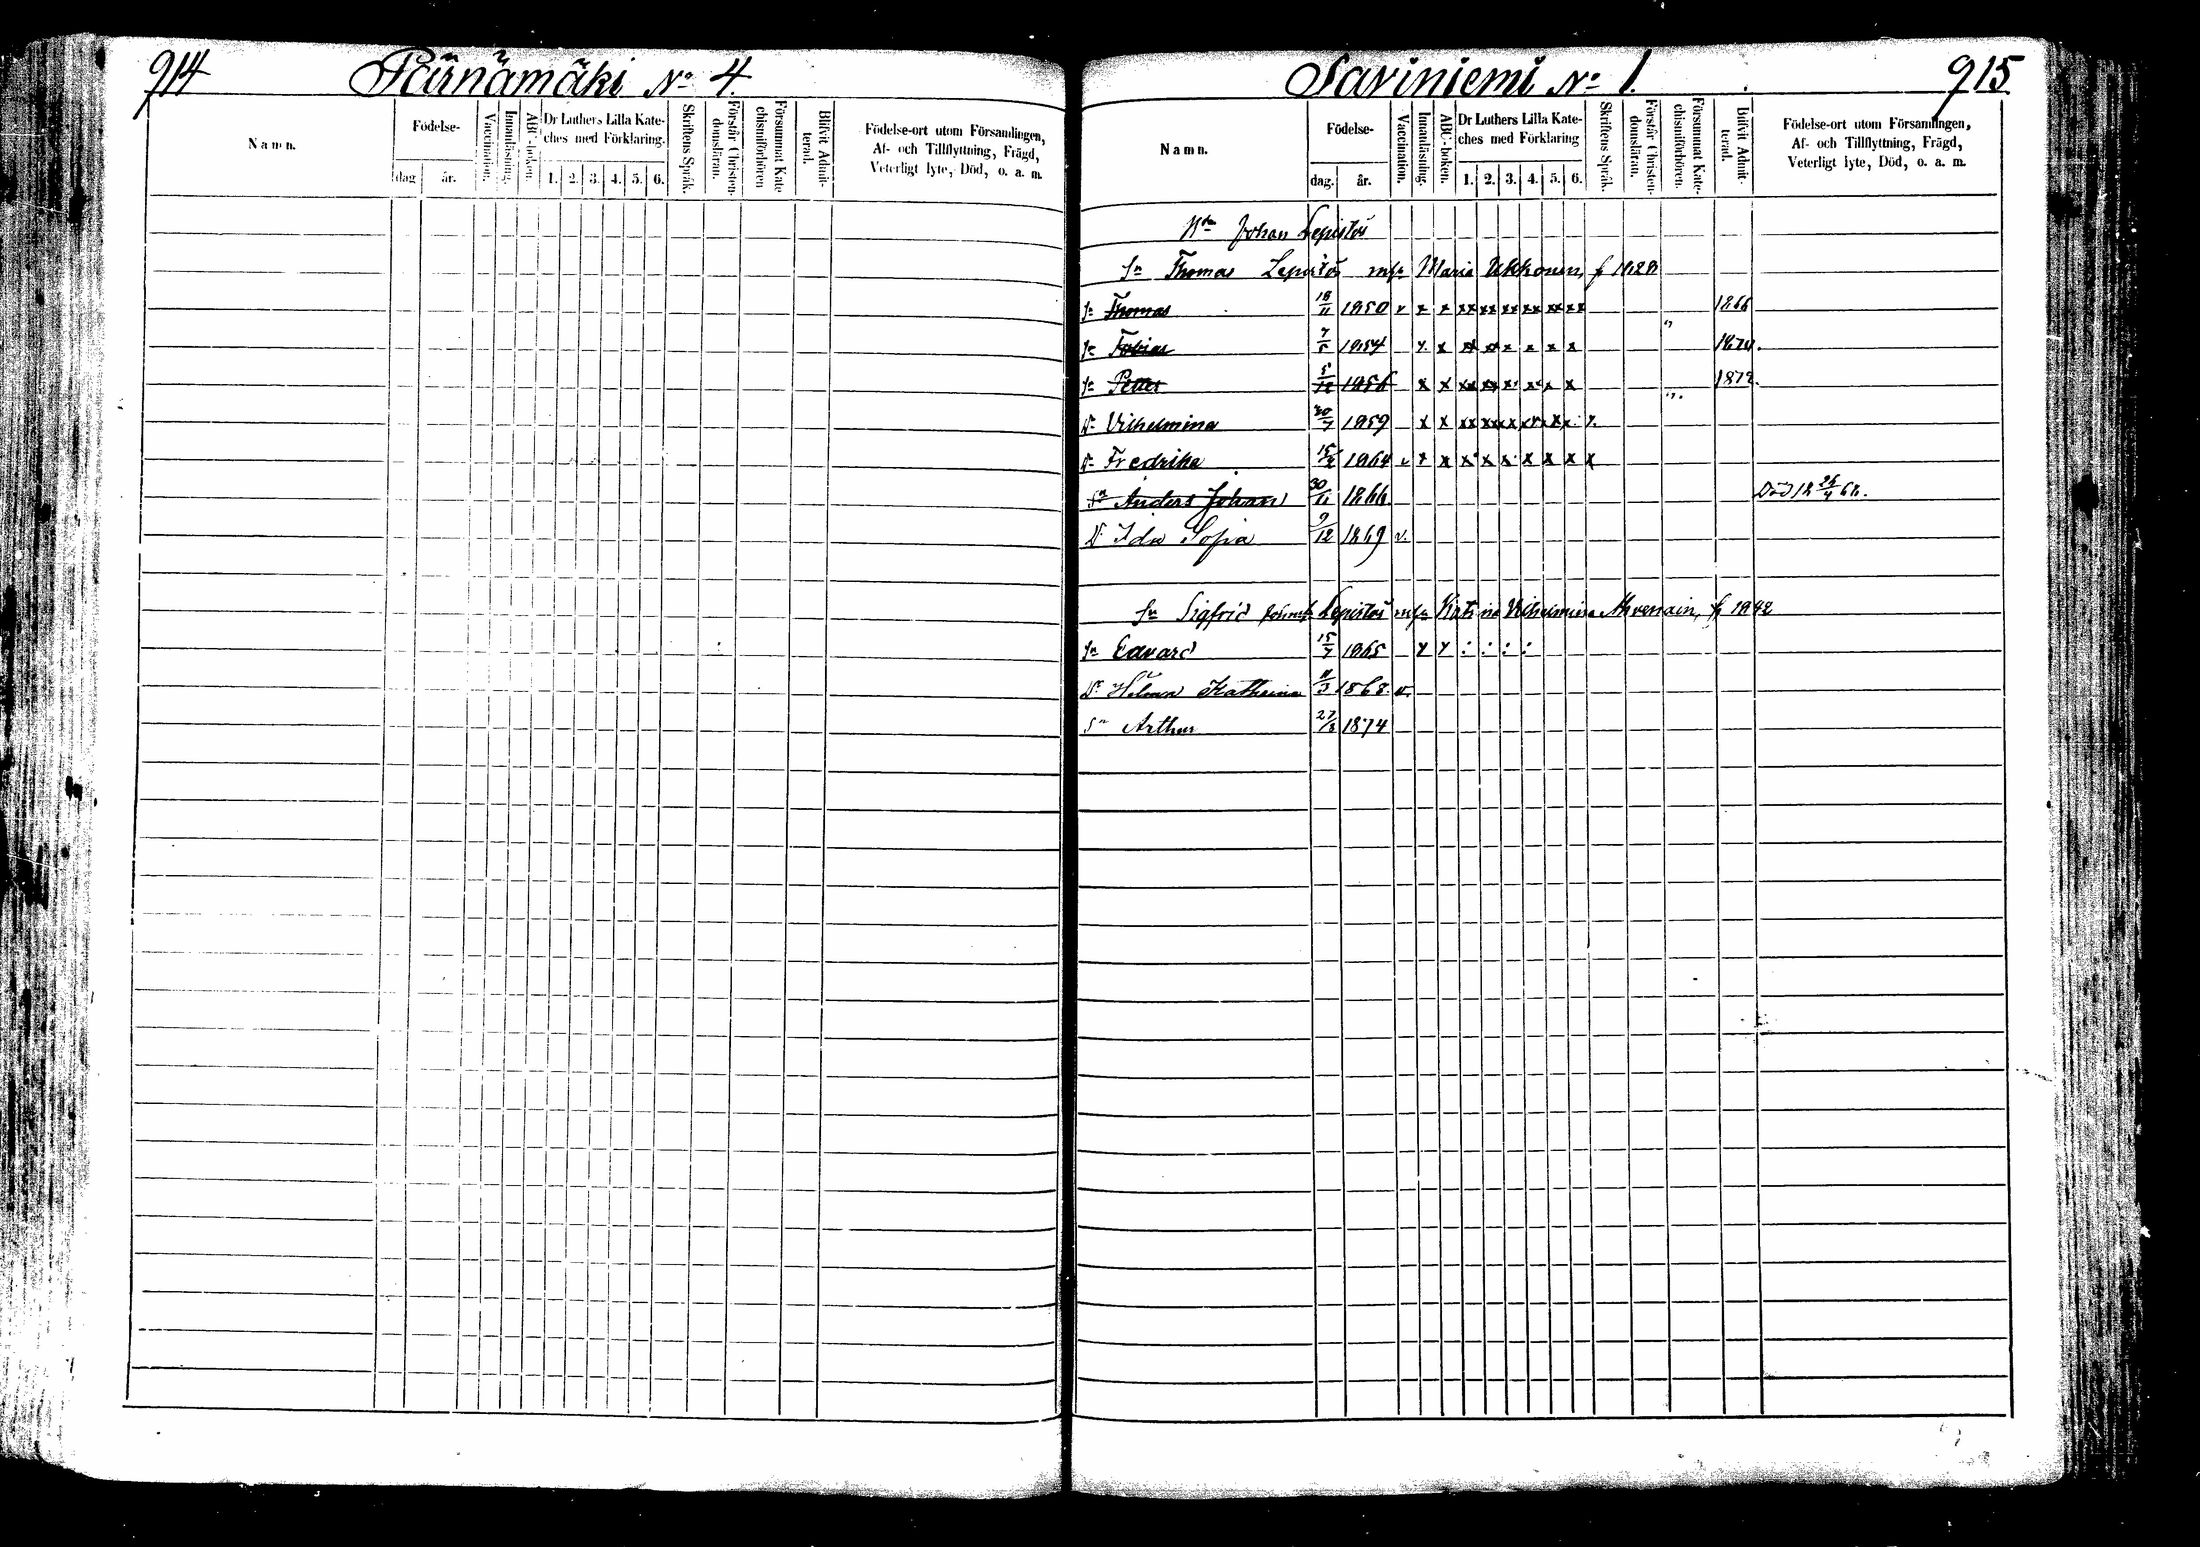 914
Pärnämäki No 4.
Namn.
Födelse-
dag
år.
Vaccination.
Innanläsning.
ABC-boken.
Dr Luthers Lilla Kate-
ches med Förklaring.
1. 2. 3. 4. 5. 6.
Skriftens Språk.
Förstår Christen-
domsläran.
Försummat Kate
chismiförhören
Blifvit Admit-
terad.
Födelse-ort utom Församlingen,
Af- och Tillflyttning, Frägd,
Veterligt lyte, Död, o. a. m.
Saviniemi No 1.
915.
Namn.
Födelse-
dag.
år.
Vaccination.
Innanläsning.
ABC-boken.
Dr Luthers Lilla Kate-
ches med Förklaring
1. 2. 3. 4. 5. 6.
Skriftens Språk.
Förstår Christen-
domsläran.
Försummat Kate-
chismiförhören.
Blifvit Admit-
terad.
Födelse-ort utom Församlingen,
Af- och Tillflyttning, Frägd,
Veterligt lyte, Död, o. a. m.
Johan Lepistös
Sn Thomas Lepistös Maria Ukkonen, f 1828
Sn Thomas 18/11 1850 v x x xx xx xx xx xx xx 1866
Sn Tobias 7/5 1854 x x xx xx x x x x 1870.
Sn Petter 5/12 1856 x x xx xx x x x x 1872.
Dr Vilhelmina 30/7 1859 x x
Dr Fredrika 1864 v x x x x x x x x x
Sn Anders Johan 30/11 1866. Död 18 26/4 68.
Dr Ida Sofia 9/12 1869 v.
Sn Sigfrid Lepistös Vilhelmina Ahvenain, f 1842
Sn Edvard 15/7 1865 x x : : : :
Dr Hilma Katharina 11/3 1868. v.
Sn Arthur 27/8 1874